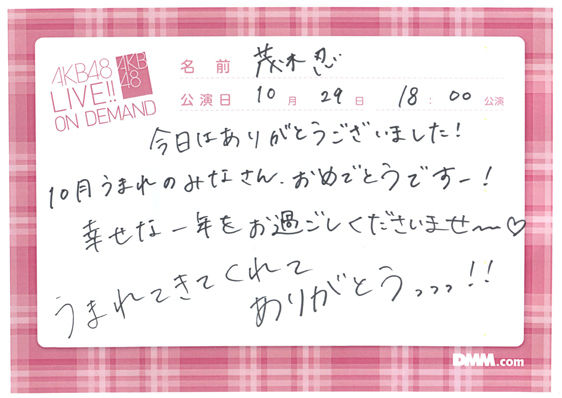 AKB48
LIVE!!
ON DEMAND
AKB
48
名前 茂木忍
公演日 10月29日 18:00公演
今日はありがとうございました!
10月うまれのみなさん、おめでとうですー!
幸せな一年をお過ごしくださいませ〜♡
うまれてきてくれて
ありがとうっっっ!!
DMM.com